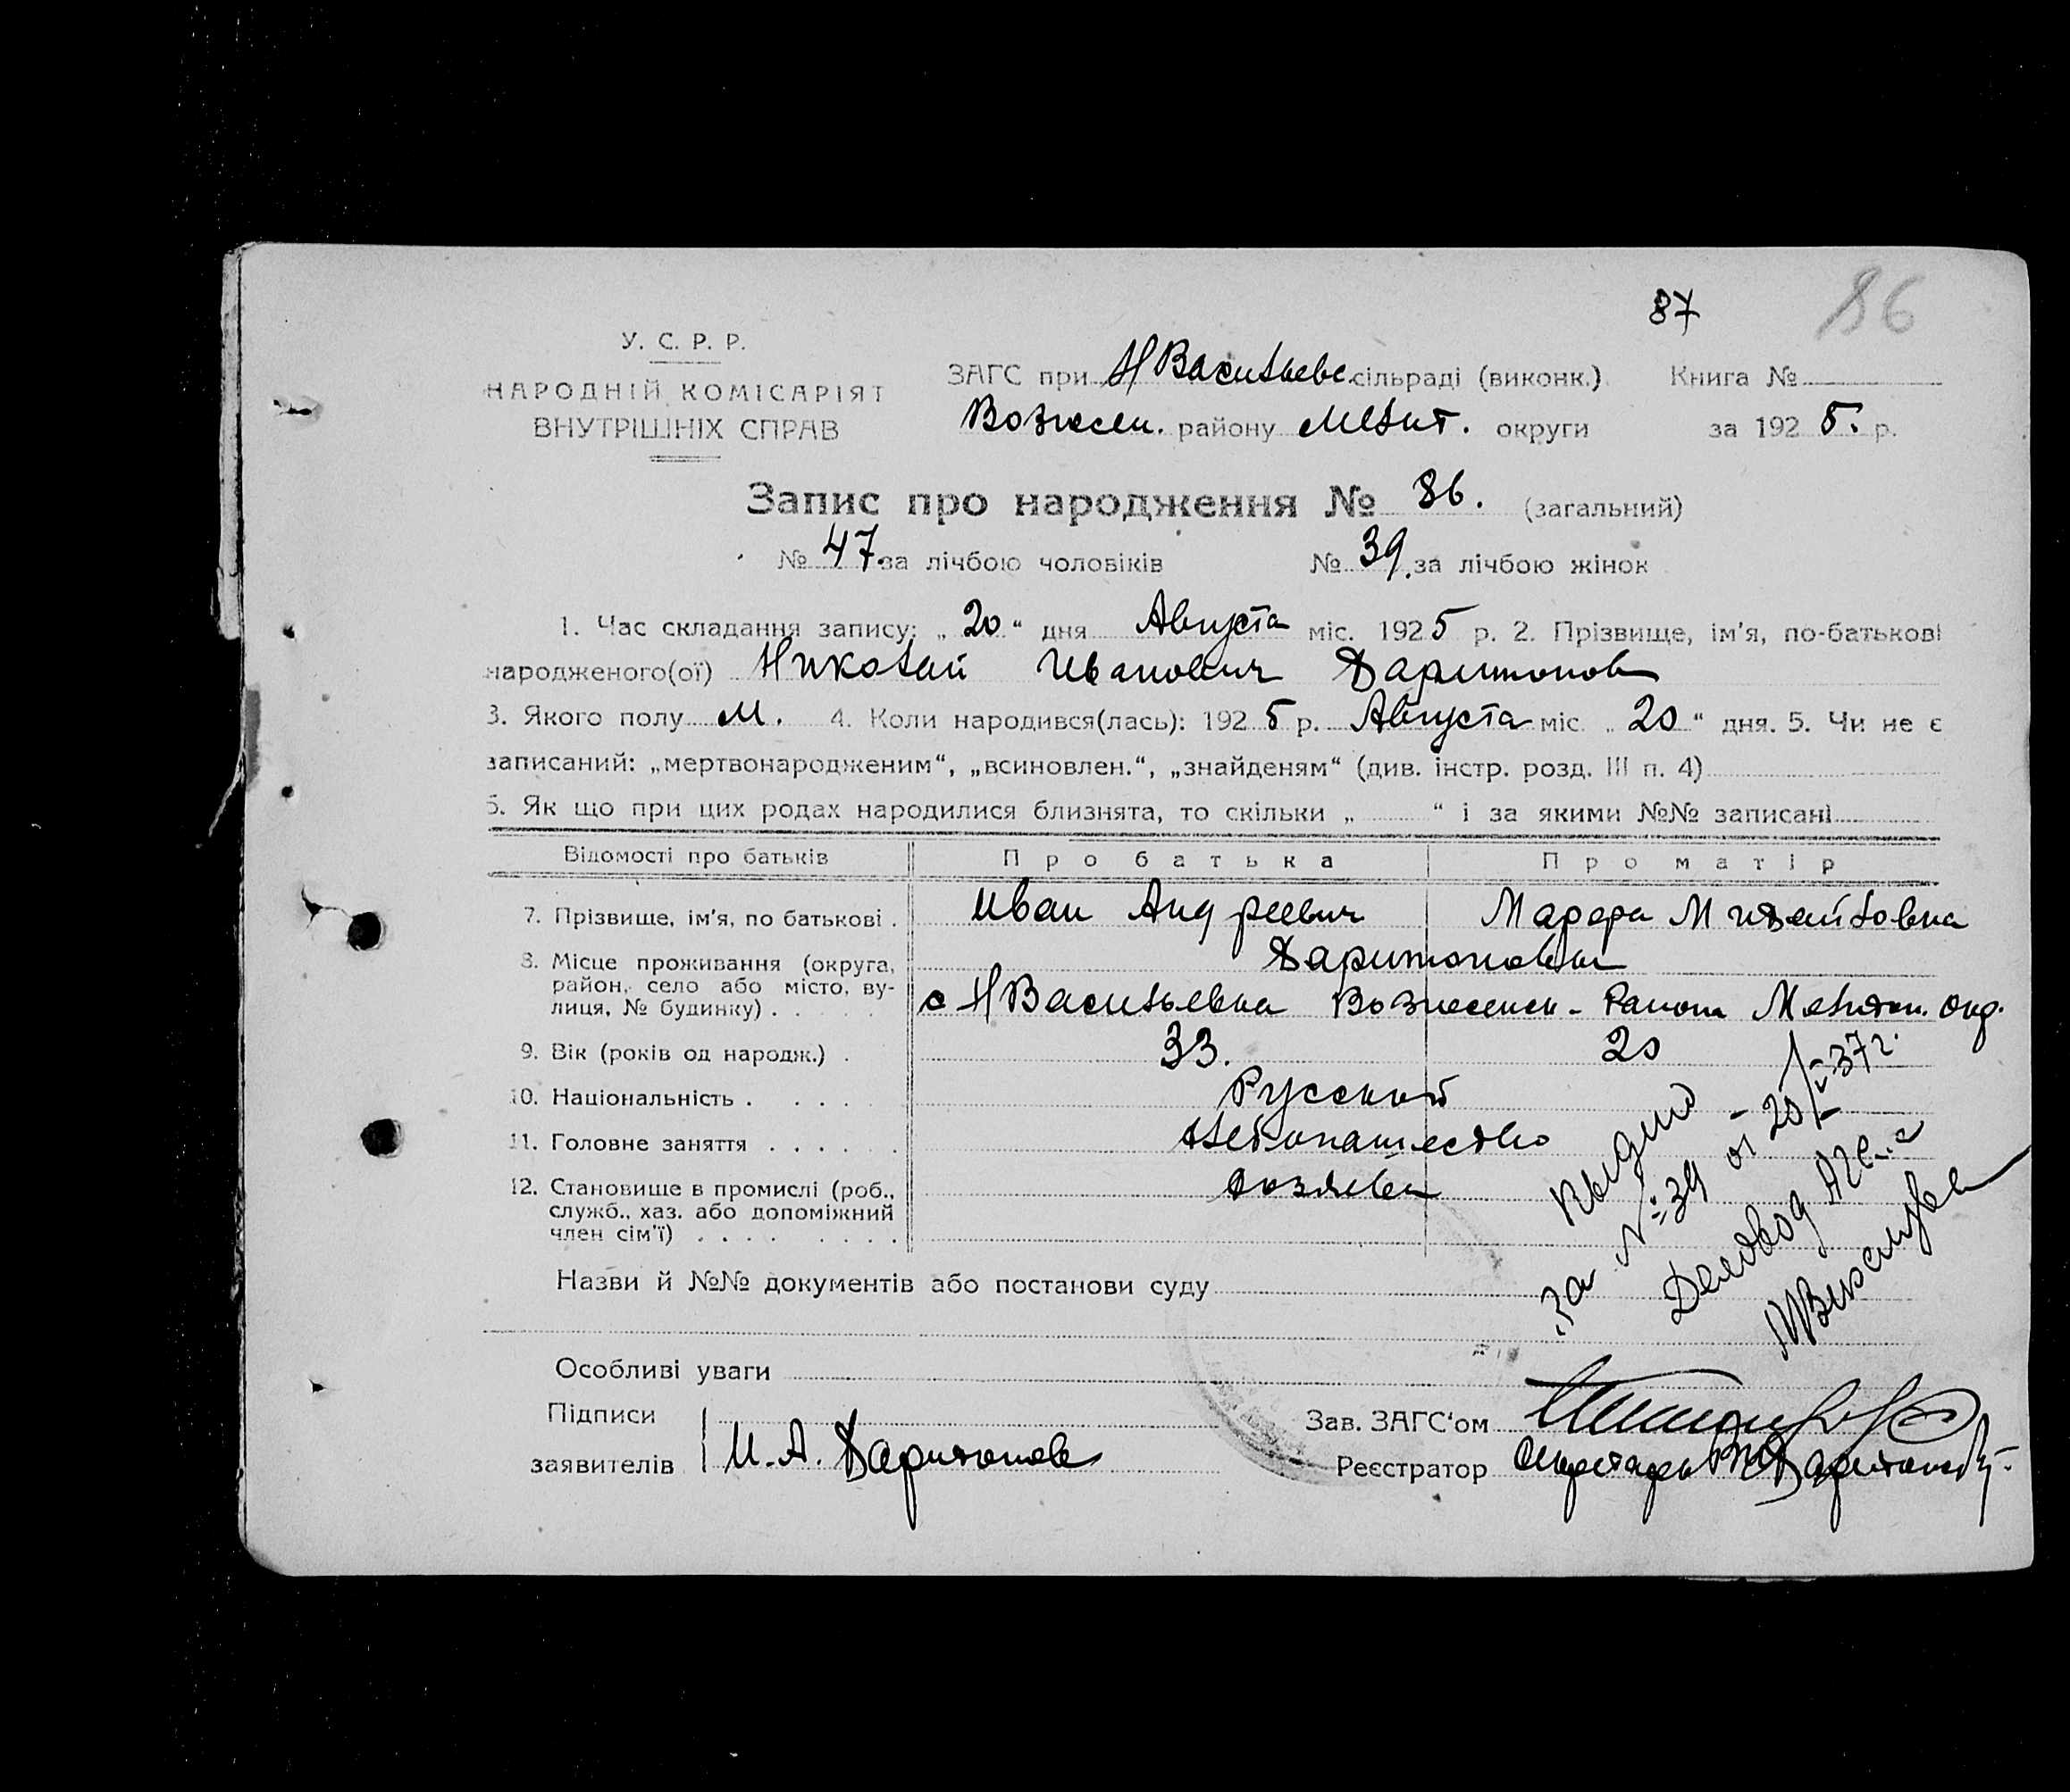 87 86
У. С. Р. Р.
НАРОДНІЙ КОМІСАРІЯТ
ВНУТРІШНІХ СПРАВ
ЗАГС при Н Васильевс. сільраді (виконк.) Книга №
Вознесен. району Мелит. округи за 1925. р.
Запис про народження № 86. (загальний)
№ 47. за лічбою чоловіків № 39. за лічбою жінок
1. Час складання запису: „20“ дня Августа міс. 1925 р. 2. Прізвище, ім'я, по-батькові
народженого(ої) Николай Иванович Харитонов
3. Якого полу М. 4. Коли народився(лась): 1925 р. Августа міс. „20“ дня. 5. Чи не є
записаний: „мертвонародженим“, „всиновлен.“, „знайденям“ (див. інстр. розд. III п. 4)
6. Як що при цих родах народилися близнята, то скільки „ “ і за якими №№ записані
Відомості про батьків Про батька Про матір
7. Прізвище, ім'я, по батькові . Иван Андреевич Марфа Михайловна
Харитоновы
8. Місце проживання (округа,
район, село або місто, ву-
лиця, № будинку) . с Н Васильевка Вознесенск- Района Мелитоп. окр.
9. Вік (років од народж.) . 33. 20
10. Національність . Русский
11. Головне заняття . . . . . . Хлебопашество
12. Становище в промислі (роб.,
служб., хаз. або допоміжний
член сім'ї) . . . . хозяева
Назви й №№ документів або постанови суду
Выдано
за № 39 от 20/V-37г.
Деловод
Особливі уваги
Підписи
заявителів И. А. Харитонов
Зав. ЗАГС'ом
Реєстратор Секретарь Харитонов